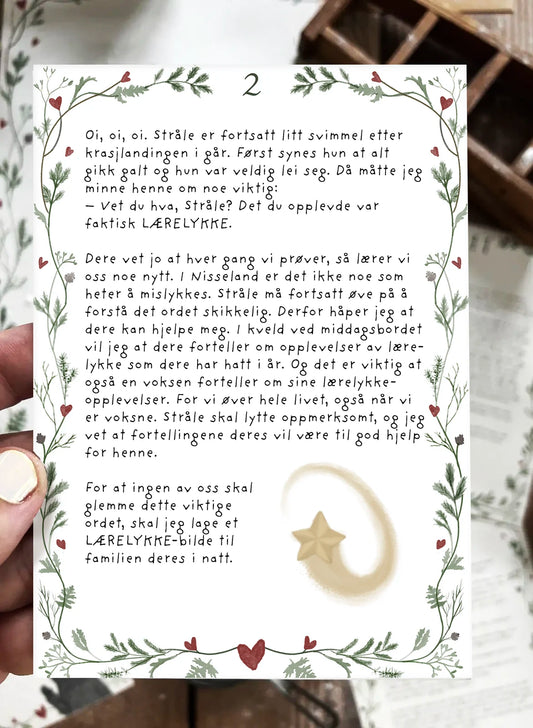 2
Oi, oi, oi. Stråle er fortsatt litt svimmel etter
krasjlandingen i går. Først synes hun at alt
gikk galt og hun var veldig lei seg. Då måtte jeg
minne henne om noe viktig:
– Vet du hva, Stråle? Det du opplevde var
faktisk LÆRELYKKE.
Dere vet jo at hver gang vi prøver, så lærer vi
oss noe nytt. I Nisseland er det ikke noe som
heter å mislykkes. Stråle må fortsatt øve på å
forstå det ordet skikkelig. Derfor håper jeg at
dere kan hjelpe meg. I kveld ved middagsbordet
vil jeg at dere forteller om opplevelser av lære-
lykke som dere har hatt i år. Og det er viktig at
også en voksen forteller om sine lærelykke-
opplevelser. For vi øver hele livet, også når vi
er voksne. Stråle skal lytte oppmerksomt, og jeg
vet at fortellingene deres vil være til god hjelp
for henne.
For at ingen av oss skal
glemme dette viktige
ordet, skal jeg lage et
LÆRELYKKE-bilde til
familien deres i natt.